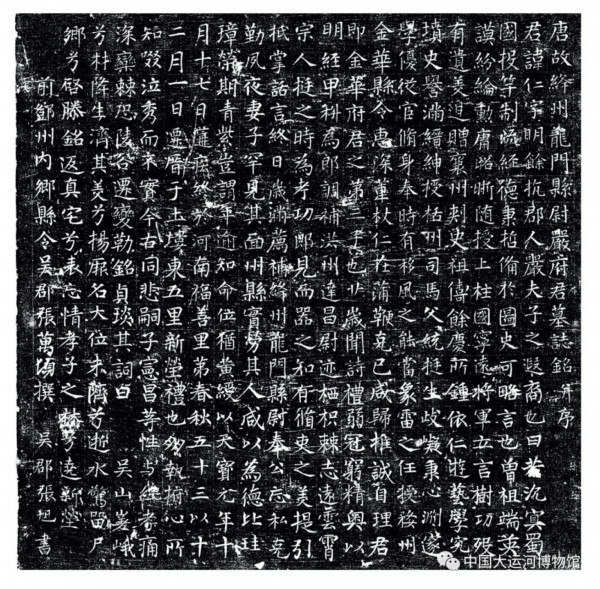 唐故絳州龍門縣尉嚴府君墓誌銘并序
君諱仁字明餘杭郡人嚴夫子之遐裔也曰若沉冥蜀
國投竿制瀨經德秉哲備於圖史可略言也曾祖端英
謨紛綸勳庸昭晰随授上柱國寧遠將軍立言樹功歿
有遺美追贈襄州刺史祖儔餘慶所鍾依仁遊藝學究
墳史譽滿縉紳授栝州司馬父統挺生岐嶷秉心淵邃
學優從官脩身奉時有移風之能當象雷之任授婺州
金華縣令惠深葦杖仁在蒲鞭克己咸歸推誠自理君
即金華府君之第三子也廿歲聞詩禮弱冠窮精奧以
明經甲科為郎調補洪州建昌尉迹栖枳棘志遠雲霄
宗人挺之時為考功郎見而器之知有循吏之美提引
抵掌話言終日歲滿薦補絳州龍門縣尉奉公忘私克
勤夙夜妻子罕見其面州縣實勞其人咸以為德比珪
璋榮斯青紫豈謂年逾知命位猶黃綬以天寶元年十
月十七日終於河南福善里第春秋五十三以十
二月一日遷厝于土婁東五里新塋禮也執搢心所
知泣而来實今古同悲嗣子憲昌等性与經者痛
深欒棘恐陵谷遷變勒銘貞琰其詞曰 吳山峩峨
兮材降生濟其美兮揚厥名大位未躋兮逝水驚留尸
鄉兮啓滕銘返真宅兮表忘情孝子之慕兮遶新塋
前鄧州內鄉縣令吳郡張萬頃撰 吳郡張旭書
中国大运河博物馆